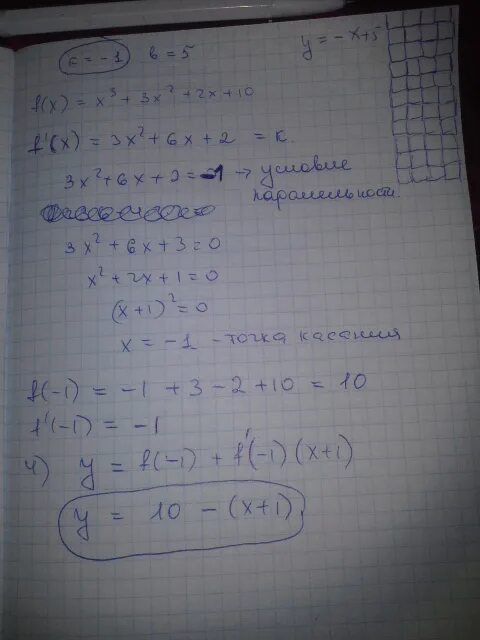 к = -1 в = 5 y = -x+5
f(x) = x³ + 3x² + 2x + 10
f'(x) = 3x² + 6x + 2 = к
3x² + 6x + 2 = -1 → условие
паралельности
3x² + 6x + 3 = 0
x² + 2x + 1 = 0
(x+1)² = 0
x = -1 - точка касания
f(-1) = -1 + 3 - 2 + 10 = 10
f'(-1) = -1
4) y = f(-1) + f'(-1) (x+1)
y = 10 - (x+1)